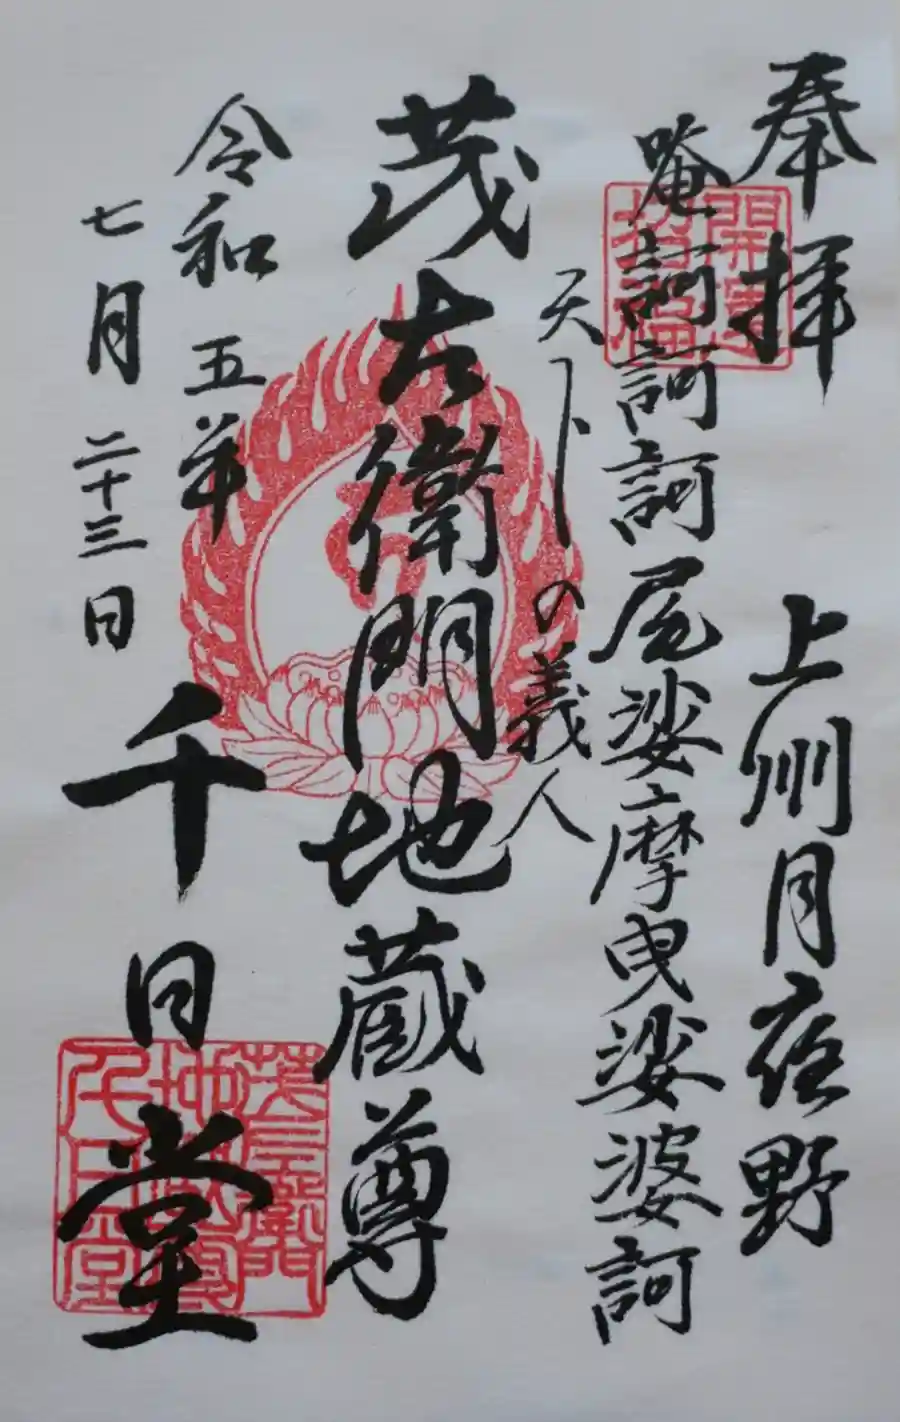 奉拝
上州月夜野
唵訶訶訶尾娑摩曳娑婆訶
天下の義人
茂左衛門地蔵尊
令和五年
七月二十三日
千日堂
開運
招福
茂左衛門
地蔵尊
千日堂